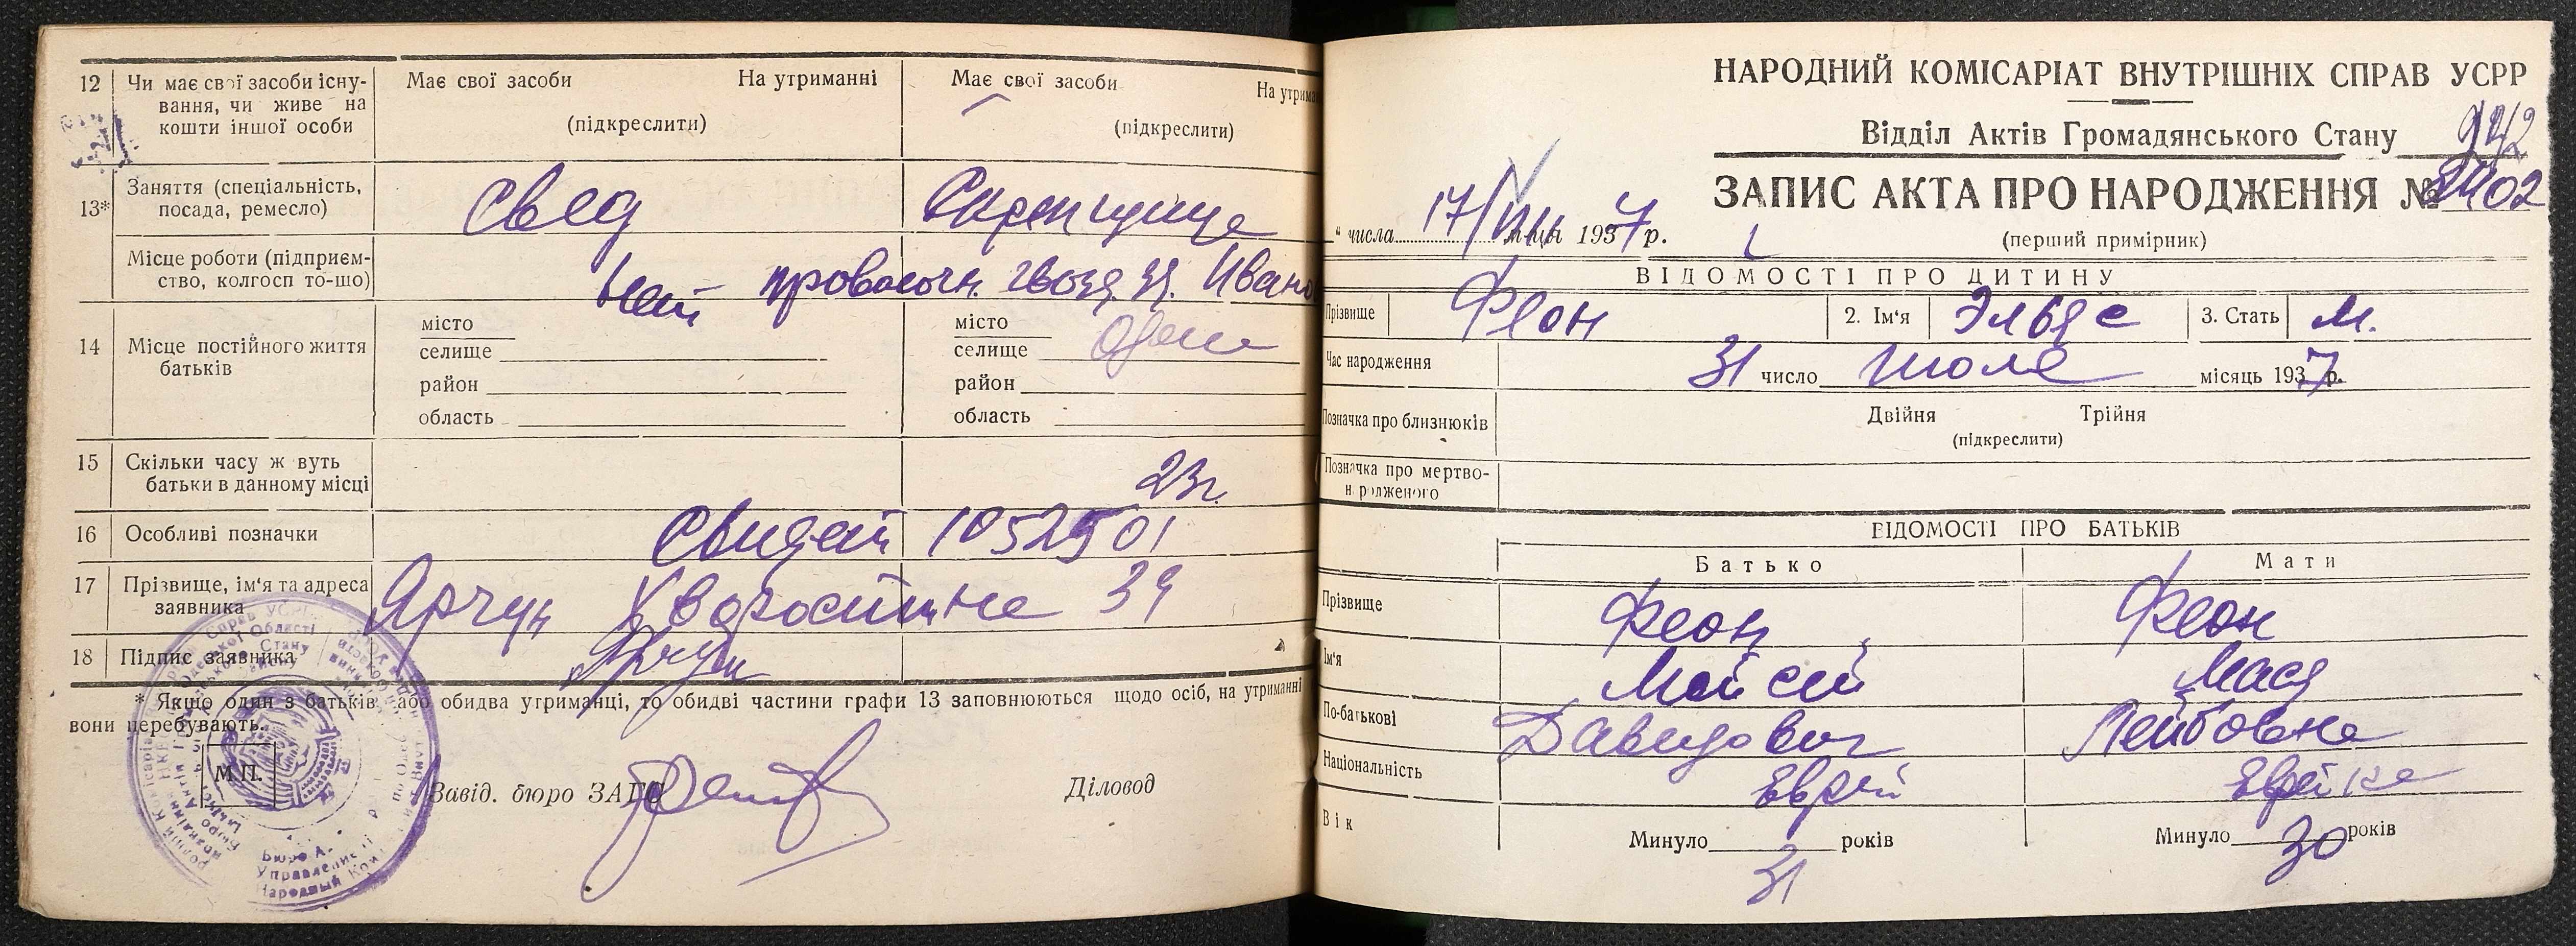 12 Чи має свої засоби існу-
вання, чи живе на
кошти іншої особи
Має свої засоби На утриманні
(підкреслити)
Має свої засоби На утрима
(підкреслити)
13* Заняття (спеціальність,
посада, ремесло)
Місце роботи (підприєм-
ство, колгосп то-що)
гвозд. зд. Ивано
14 Місце постійного життя
батьків
місто
селище
район
область
місто
селище Одесса
район
область
15 Скільки часу ж вуть
батьки в данному місці
23 г.
16 Особливі позначки
17 Прізвище, ім'я та адреса
заявника
Ярчун Хворостина 39
18 Підпис заявника
Ярчун
* Якщо один з батьків або обидва утриманці, то обидві частини графи 13 заповнюються щодо осіб, на утриманні
вони перебувають.
М.П.
Завід. бюро ЗАГС Діловод
НАРОДНИЙ КОМІСАРІАТ ВНУТРІШНІХ СПРАВ УСРР
Відділ Актів Громадянського Стану
942
ЗАПИС АКТА ПРО НАРОДЖЕННЯ №
(перший примірник)
" числа 17/VIII м-ця 1937 р.
ВІДОМОСТІ ПРО ДИТИНУ
Прізвище Феон 2. Ім'я 3. Стать м.
Час народження 31 число июля місяць 1937 р.
Позначка про близнюків Двійня Трійня
(підкреслити)
Позначка про мертво-
н родженого
ВІДОМОСТІ ПРО БАТЬКІВ
Батько Мати
Прізвище Феон Феон
Ім'я Мойсей Мася
По-батькові Давидович Лейбовна
Національність Еврей Еврейка
Вік Минуло 31 років Минуло 30 років